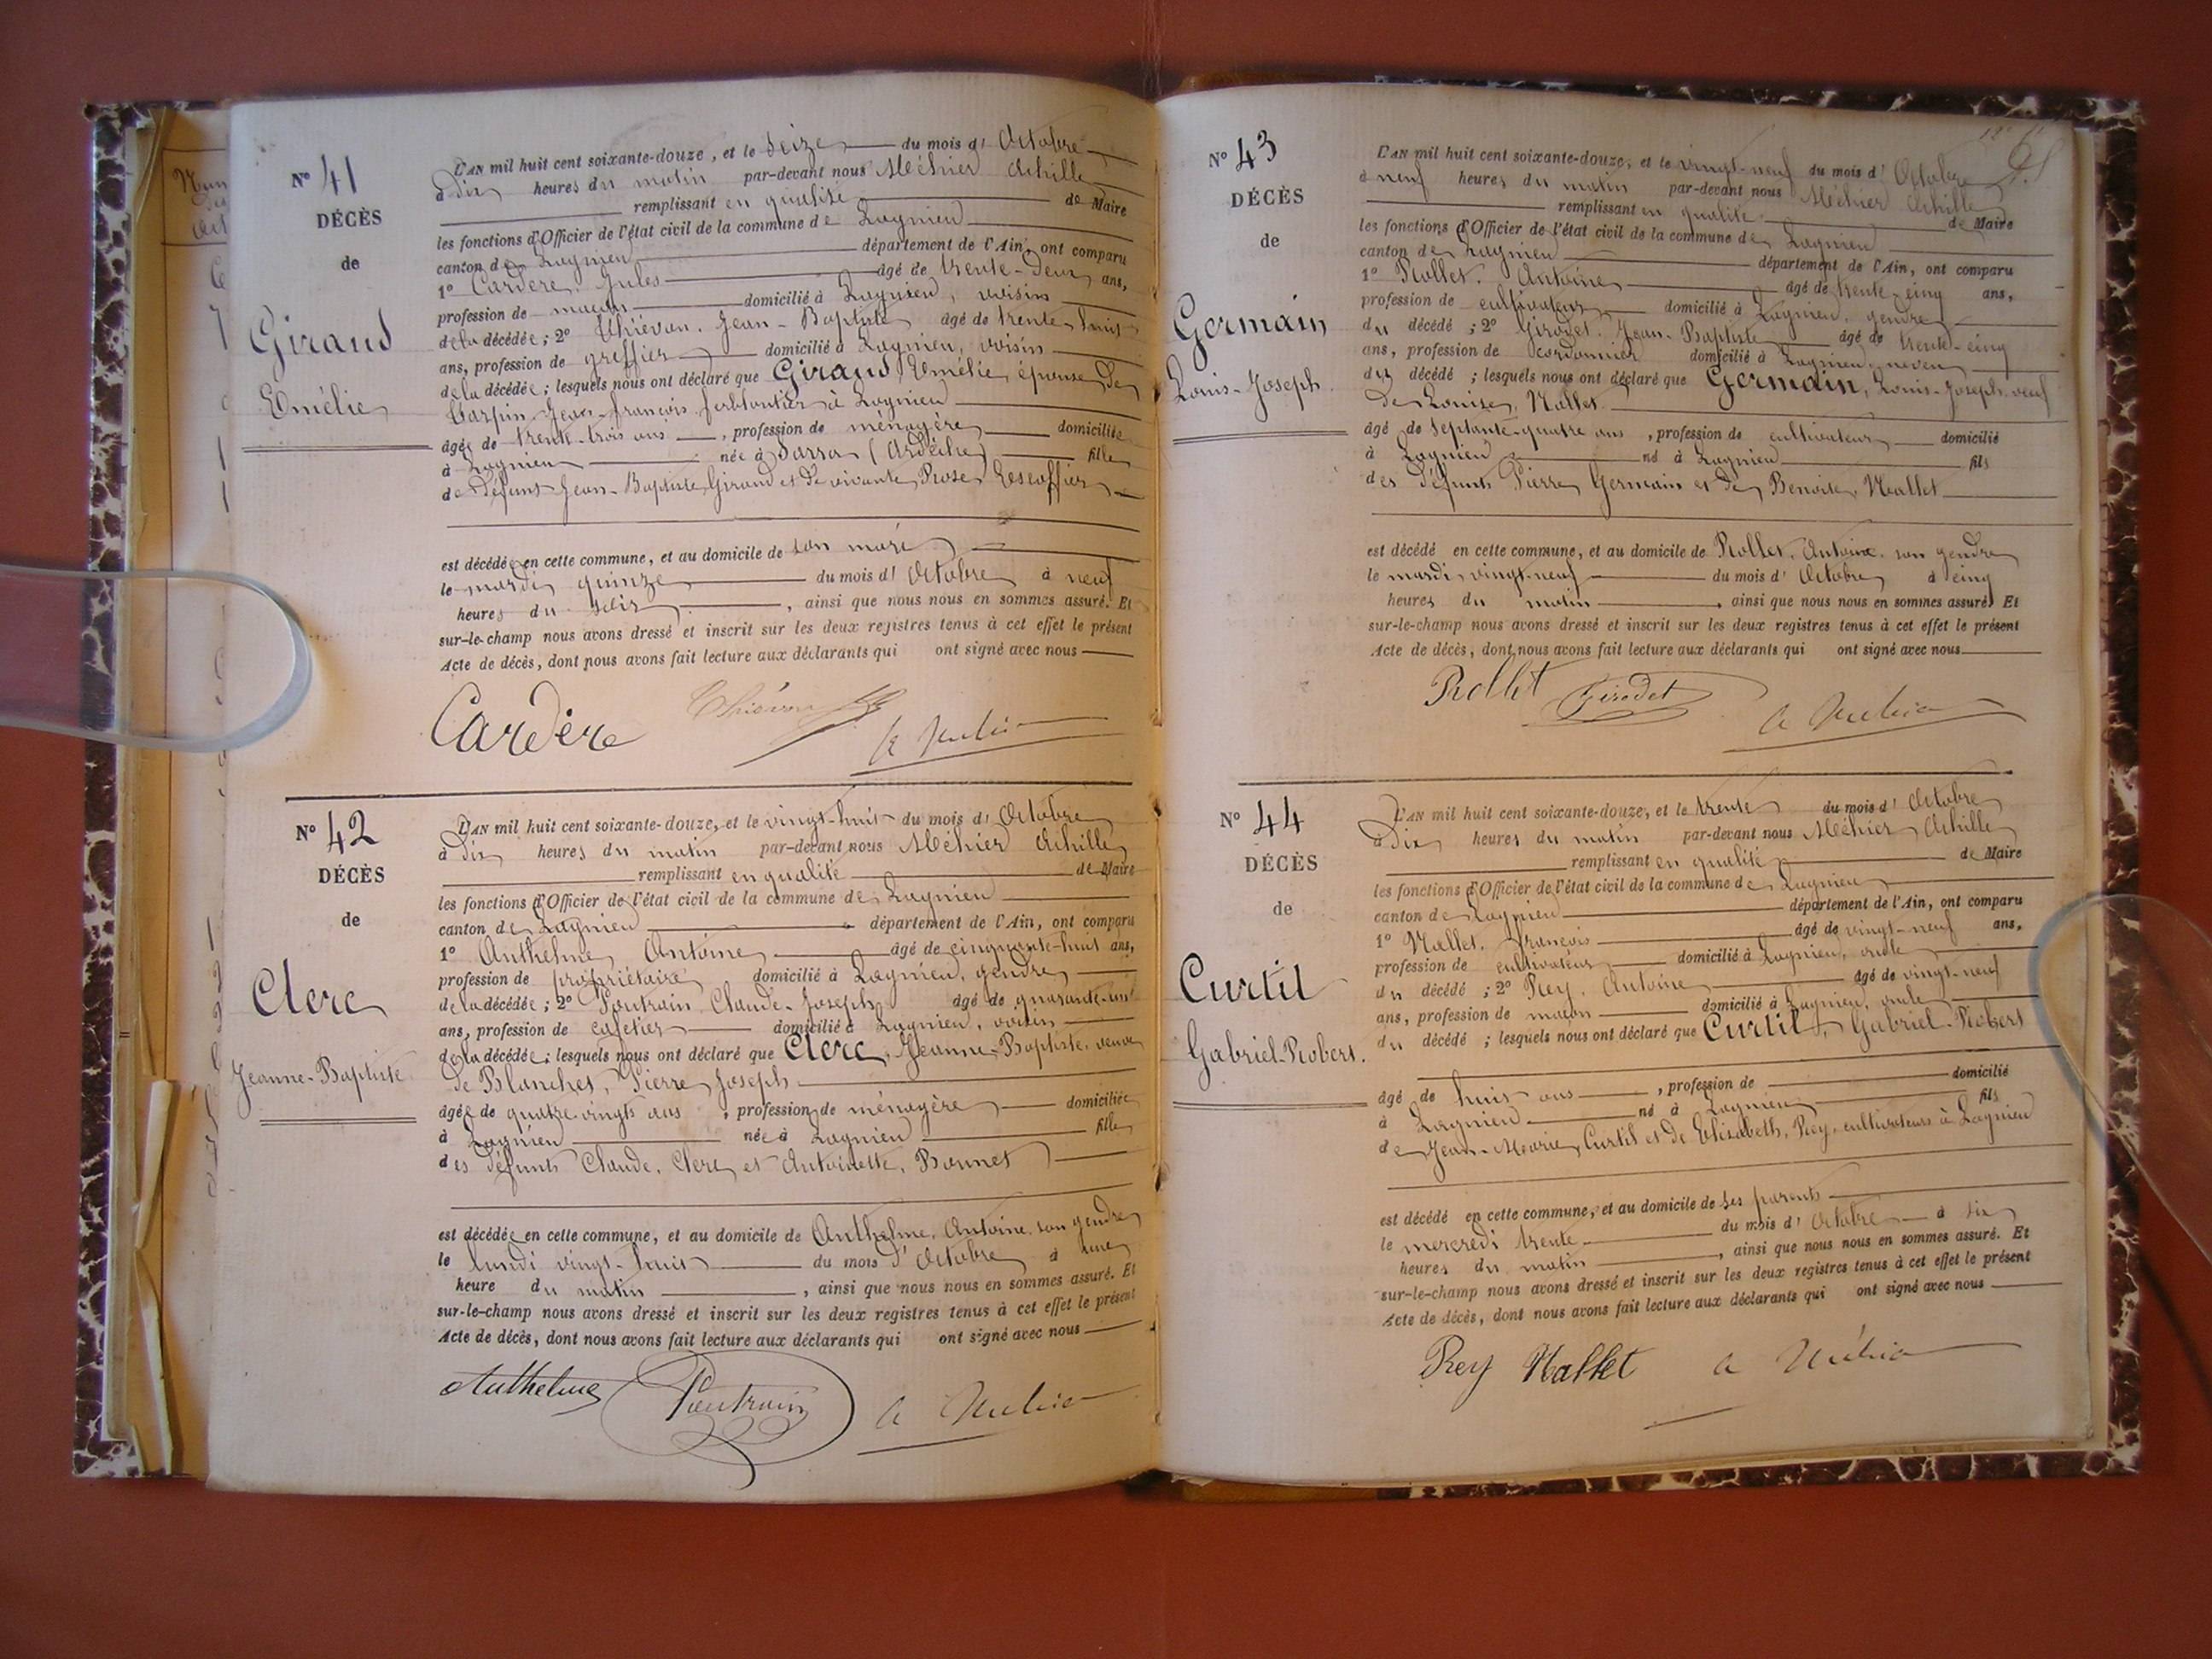 N° 41
DÉCÈS
de
Giraud
Emélie
L'AN mil huit cent soixante-douze, et le seize du mois d'Octobre
à dix heures du matin par-devant nous Méhier Achille
remplissant en qualité de Maire
les fonctions d'Officier de l'état civil de la commune de Lagnieu
canton de Lagnieu département de l'Ain, ont comparu
1° Cardere, Jules âgé de trente-deux ans,
profession de maçon domicilié à Lagnieu, voisin
de la décédée; 2° Thiévon, Jean-Baptiste âgé de trente huit
ans, profession de greffier domicilié à Lagnieu, voisin
de la décédée; lesquels nous ont déclaré que Giraud, Emélie, épouse de
Jean-François, ferblantier à Lagnieu
âgée de trente-trois ans, profession de ménagère domiciliée
à Lagnieu née à Sarras (Ardèche) fille
de défunt Jean-Baptiste Giraud et de vivante Rose Escoffier
est décédée en cette commune, et au domicile de son mari
le mardi quinze du mois d'Octobre à neuf
heures du soir, ainsi que nous nous en sommes assuré. Et
sur-le-champ nous avons dressé et inscrit sur les deux registres tenus à cet effet le présent
Acte de décès, dont nous avons fait lecture aux déclarants qui ont signé avec nous
Cardere Thiévon A Méhier
N° 42
DÉCÈS
de
Clerc
Jeanne-Baptiste
L'AN mil huit cent soixante-douze, et le vingt-huit du mois d'Octobre
à dix heures du matin par-devant nous Méhier Achille
remplissant en qualité de Maire
les fonctions d'Officier de l'état civil de la commune de Lagnieu
canton de Lagnieu département de l'Ain, ont comparu
1° Anthelme Antoine âgé de cinquante-huit ans,
profession de propriétaire domicilié à Lagnieu, gendre
de la décédée; 2° Poutrain Claude-Joseph âgé de quarante-un
ans, profession de cafetier domicilié à Lagnieu, voisin
de la décédée; lesquels nous ont déclaré que Clerc, Jeanne-Baptiste, veuve
de Blanchet, Pierre Joseph
âgée de quatre-vingts ans, profession de ménagère domiciliée
à Lagnieu née à Lagnieu fille
des défunts Claude, Clerc et Antoinette, Bonnet
est décédée en cette commune, et au domicile de Anthelme, Antoine, son gendre
le lundi vingt-huit du mois d'Octobre à une
heure du matin, ainsi que nous nous en sommes assuré. Et
sur-le-champ nous avons dressé et inscrit sur les deux registres tenus à cet effet le présent
Acte de décès, dont nous avons fait lecture aux déclarants qui ont signé avec nous
Anthelme Poutrain A Méhier
N° 43
DÉCÈS
de
Germain
Louis-Joseph
L'AN mil huit cent soixante-douze, et le vingt-neuf du mois d'Octobre
à neuf heures du matin par-devant nous Méhier Achille
remplissant en qualité de Maire
les fonctions d'Officier de l'état civil de la commune de Lagnieu
canton de Lagnieu département de l'Ain, ont comparu
1° Rollet, Antoine âgé de trente-cinq ans,
profession de cultivateur domicilié à Lagnieu, gendre
du décédé; 2° Girodet, Jean-Baptiste âgé de trente-cinq
ans, profession de cordonnier domicilié à Lagnieu, neveu
du décédé; lesquels nous ont déclaré que Germain, Louis-Joseph, veuf
de Louise, Nallet
âgé de septante-quatre ans, profession de cultivateur domicilié
à Lagnieu né à Lagnieu fils
des défunts Pierre Germain et de Benoite, Nallet
est décédé en cette commune, et au domicile de Rollet, Antoine, son gendre
le mardi vingt-neuf du mois d'Octobre à cinq
heures du matin, ainsi que nous nous en sommes assuré. Et
sur-le-champ nous avons dressé et inscrit sur les deux registres tenus à cet effet le présent
Acte de décès, dont nous avons fait lecture aux déclarants qui ont signé avec nous
Rollet Girodet A Méhier
N° 44
DÉCÈS
de
Curtil
Gabriel-Robert.
L'AN mil huit cent soixante-douze, et le trente du mois d'Octobre
à dix heures du matin par-devant nous Méhier Achille
remplissant en qualité de Maire
les fonctions d'Officier de l'état civil de la commune de Lagnieu
canton de Lagnieu département de l'Ain, ont comparu
1° Nallet, François âgé de vingt-neuf ans,
profession de cultivateur domicilié à Lagnieu, oncle
du décédé; 2° Rey, Antoine âgé de vingt-neuf
ans, profession de maçon domicilié à Lagnieu, oncle
du décédé; lesquels nous ont déclaré que Curtil, Gabriel-Robert
âgé de huit ans, profession de domicilié
à Lagnieu né à Lagnieu fils
de Jean-Marie, Curtil et de Elisabeth, Rey, cultivateurs à Lagnieu
est décédé en cette commune, et au domicile de ses parents
le mercredi trente du mois d'Octobre à six
heures du matin, ainsi que nous nous en sommes assuré. Et
sur-le-champ nous avons dressé et inscrit sur les deux registres tenus à cet effet le présent
Acte de décès, dont nous avons fait lecture aux déclarants qui ont signé avec nous
Rey Nallet A Méhier